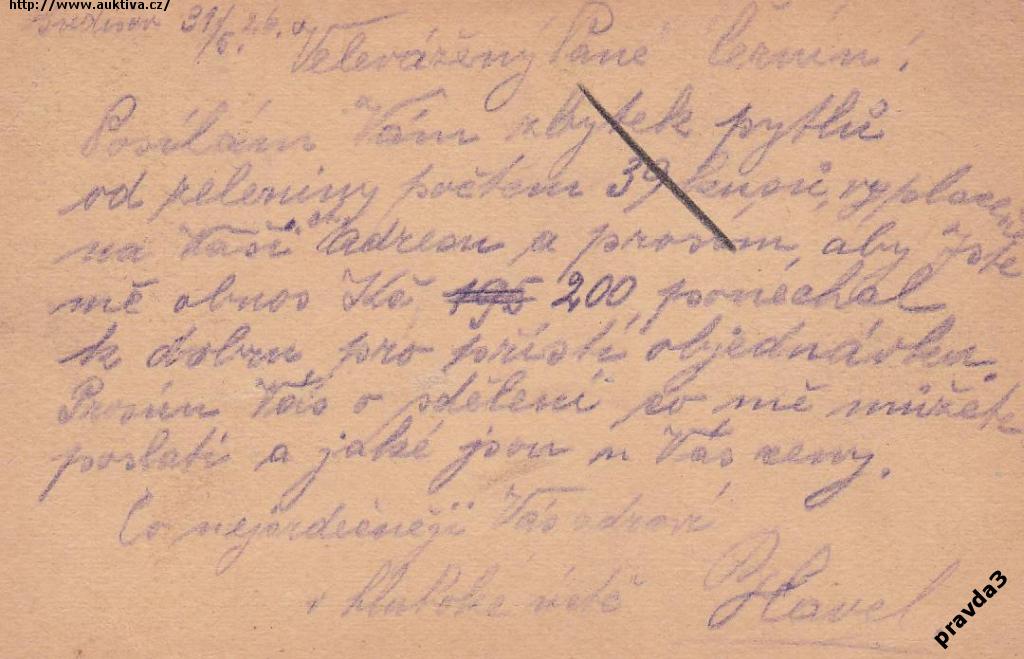 http://www.auktiva.cz/
31/5 26.
Velevážený Pane Černín!
Posílám Vám zbytek pytlů
od zeleniny počtem 39 kusů, vyplaceně
na Vaší adresu a prosím, aby Jste
mě obnos Kč 195 200, ponechal
k dobru pro příští objednávku.
Prosím Vás o sdělení co mě můžete
poslati a jaké jsou u Vás ceny.
Co nejsrdečněji Vás zdraví
v hluboké úctě Havel
pravda3